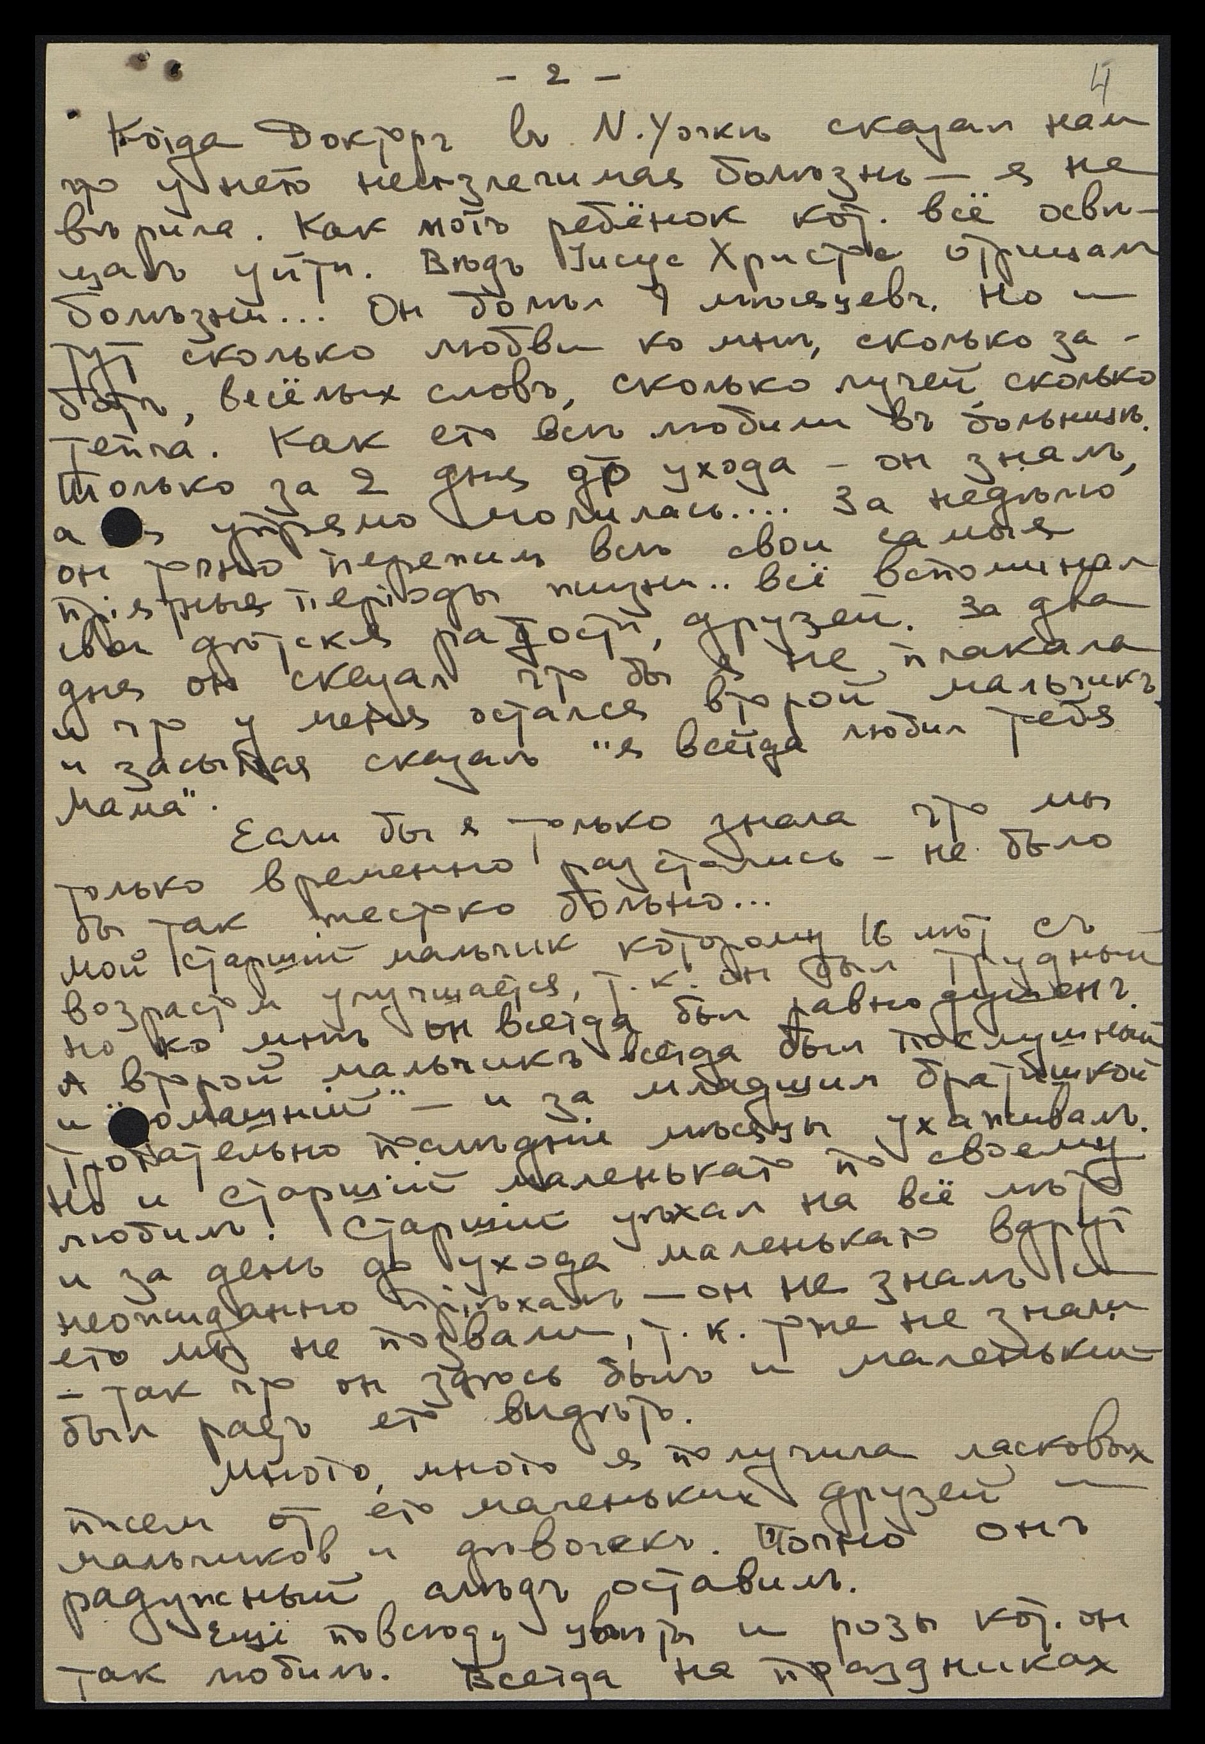 - 2 -
4
Когда Докторъ въ N.Yоркѣ сказал нам
что у него неизлечимая болѣзнь — я не
вѣрила. Как могъ ребёнок кот. всё освѣ-
щалъ уйти. Вѣдь Iисус Христос отрицал
болѣзни... Он болѣл 9 мѣсяцевъ. Но и
тут сколько любви ко мнѣ, сколько за-
ботъ, весёлых словъ, сколько лучей, сколько
тепла. Как его всѣ любили въ больницѣ.
Только за 2 дня до ухода – он зналъ,
а я упрямо молилась.... За недѣлю
он точно пережил всѣ свои самые
прiятные перiоды жизни.. всё вспоминал
свои дѣтскiя радости, друзей. За два
дня он сказал что бы я не плакала
и что у меня остался второй мальчикъ,
и засыпая сказалъ "я всегда любил тебя
мама".
Если бы я только знала что мы
только временно разстались – не было
бы так жестоко больно...
Мой старшiй мальчик которому 16 лѣт съ
возрастом улучшается, т. к. он был трудный
но ко мнѣ он всегда был равнодушенъ.
А второй мальчикъ всегда был послушный
и "домашнiй" — и за младшим братишкой
трогательно послѣднiе мѣсяцы ухаживалъ.
Но и старшiй маленькаго по своему
любилъ! Старшiй уѣхал на всё лѣто
и за день до ухода маленькаго вдруг
неожиданно прiѣхалъ — он не зналъ и
его мы не позвали, т. к. тоже не знали
– так что он здѣсь былъ и маленькiй
был радъ его видѣть.
Много, много я получила ласковых
писем от его маленьких друзей —
мальчиков и дѣвочекъ. Точно онъ
радужный слѣдъ оставилъ.
Ещё повсюду цвѣты и розы кот. он
так любилъ. Всегда на праздниках